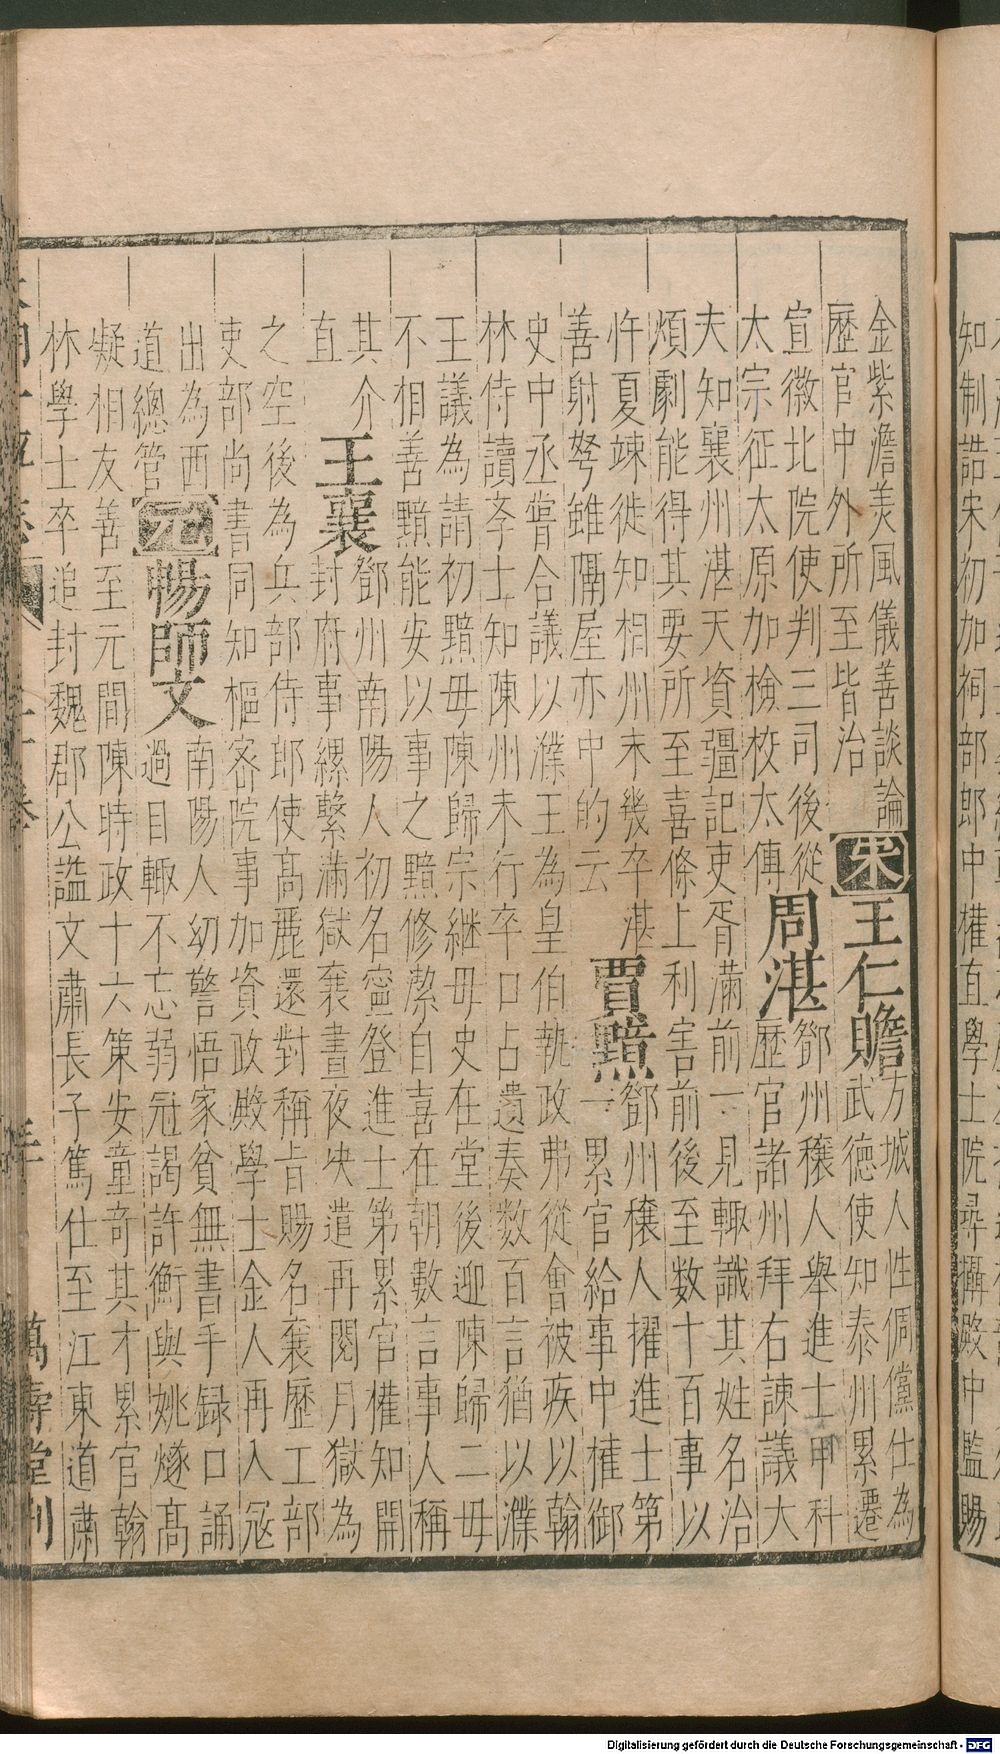 知制誥宋初加祠部郎中權直學士院尋攝殿中監賜
金紫澹美風儀善談論
歷官中外所至皆治
宋
王仁贍
方城人性倜儻仕為
武德使知泰州累遷
宣徽北院使判三司後從
太宗征太原加檢校太傅
周湛
鄧州穰人舉進士甲科
歷官諸州拜右諫議大
夫知襄州湛天資彊記吏胥滿前一見輒識其姓名治
煩劇能得其要所至喜條上利害前後至数十百事以
忤夏竦徙知相州未幾卒湛
善射弩雖隔屋亦中的云
賈黯
鄧州穰人擢進士第
一累官給事中權御
史中丞嘗合議以濮王為皇伯執政弗從會被疾以翰
林侍讀斈士知陳州未行卒口占遺奏数百言猶以濮
王議為請初黯毋陳歸宗継毋史在堂後迎陳歸二毋
不相善黯能安以事之黯修潔自喜在朝數言事人稱
其介
直
王襄
鄧州南陽人初名寧登進士第累官權知開
封府事縲繫滿獄襄晝夜决遣再閱月獄為
之空後為兵部侍郎使髙麗還對稱旨賜名襄歷工部
吏部尚書同知樞宻院事加資政殿學士金人再入冦
出為西
道總管
元
暢師文
南陽人幼警悟家貧無書手録口誦
過目輒不忘弱冠謁許衡與姚燧髙
疑相友善至元間陳時政十六策安童竒其才累官翰
林學士卒追封魏郡公謚文肅長子篤仕至江東道肅
萬壽堂刊
Digitalisierung gefördert durch die Deutsche Forschungsgemeinschaft - DFG